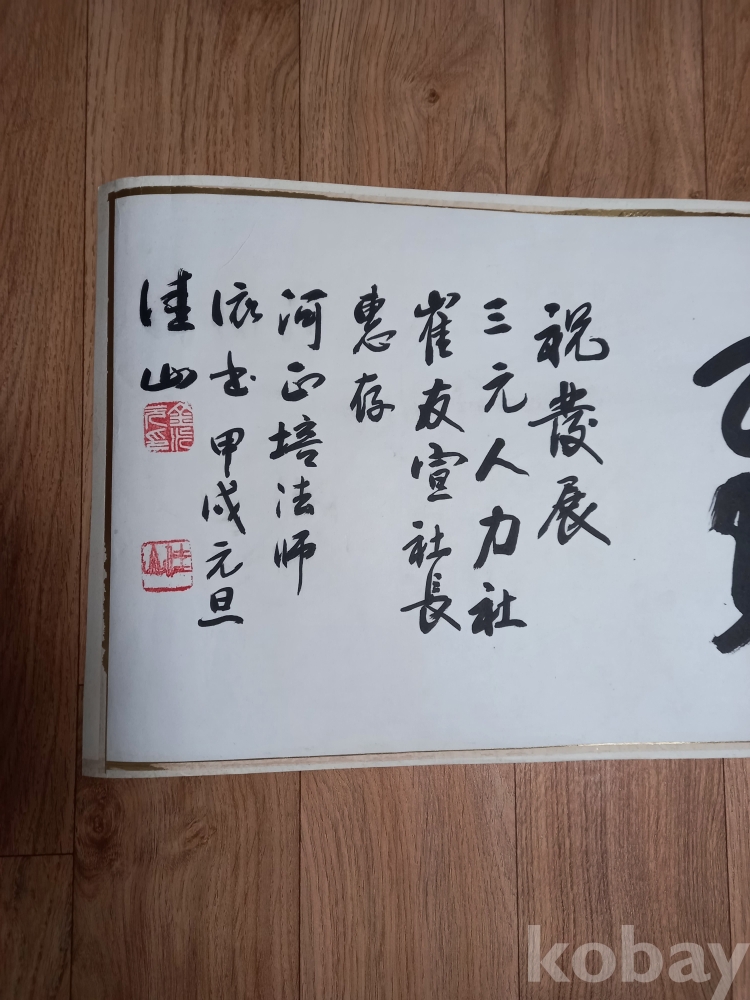 祝發展
三元人力社
崔友宣社長
惠存
河正培法师
依書 甲戌元旦
佳山
kobay